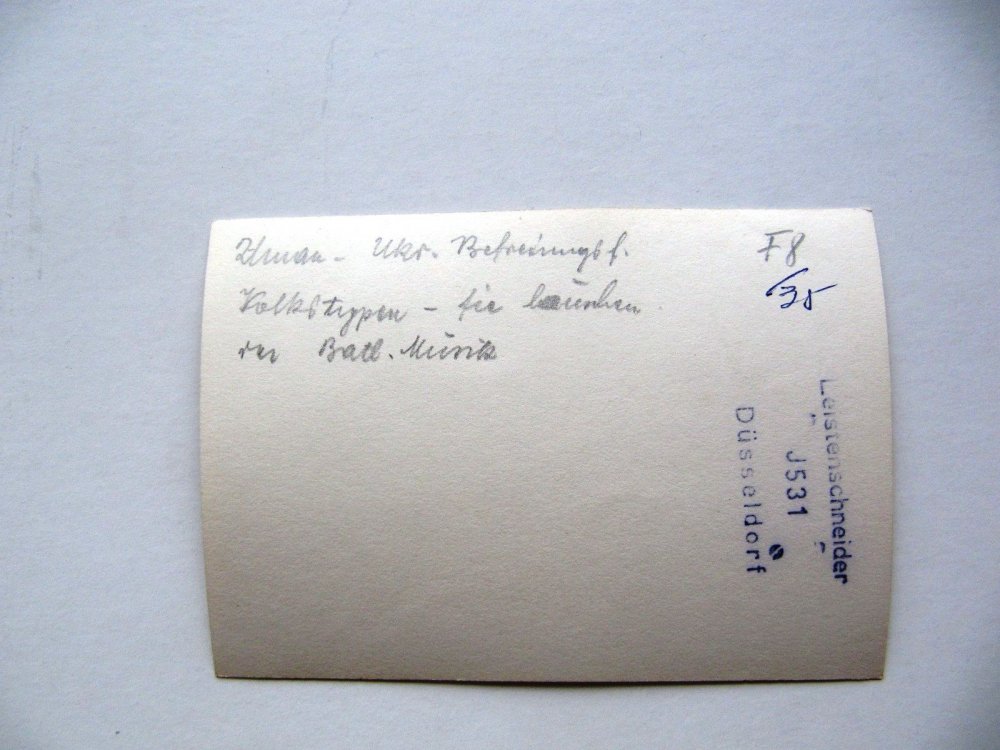 Uman - Ukr. Befreiungsf.
Volkstypen - sie lauschen
der Batl. Musik
F8
/35
Leistenschneider
J531
Düsseldorf